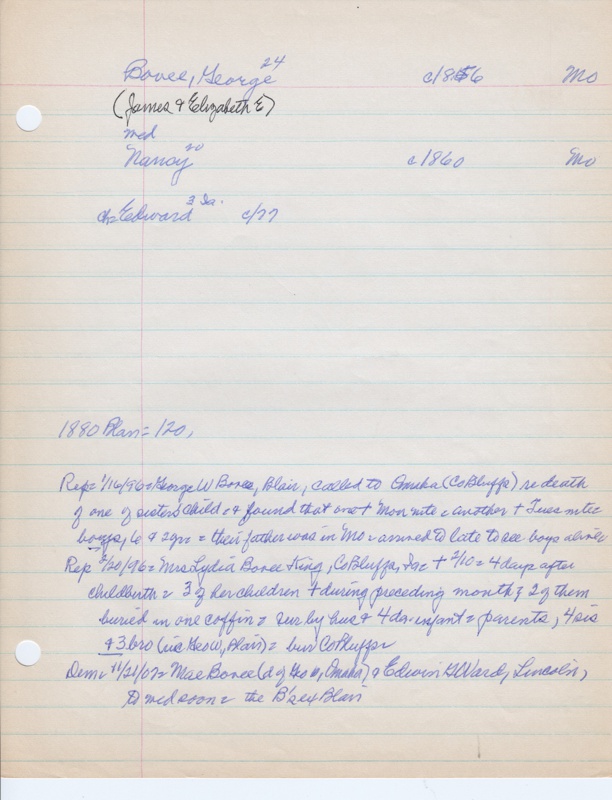 Bovee, George 24 c/1856 Mo
(James & Elizabeth E)
med
Nancy 20 c/1860 Mo
ch= Edward 3 Ia. c/77
1880 Blair = 120,
Rep= 1/16/96= George W Bovee, Blair, called to Omaha (CoBluffs) re death
of one of sisters child & found that one + Mon nite & another + Tues nite
boys, 6 & 2yrs = their father was in Mo & arrived to late to see boys alive
Rep 2/20/96= Mrs Lydia Bovee King, CoBluffs, Ia = + 2/10 = 4 days after
childbirth = 3 of her children + during preceding month & 2 of them
buried in one coffin = sur by hus & 4da. infant = parents, 4 sis
& 3 bro (inc Geo W, Blair) = bur CoBluffs
Dem= 11/21/07= Mae Bovee (d of Geo W, Omaha) & Edwin G Ward, Lincoln,
to med soon = the B's ex Blair